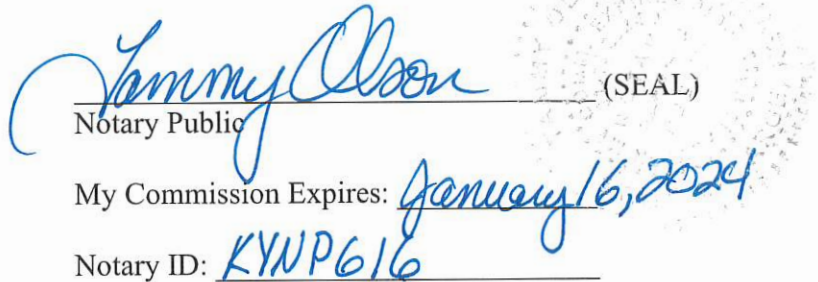 Tammy Olson (SEAL)
Notary Public
My Commission Expires: January 16, 2024
Notary ID: KYNP616